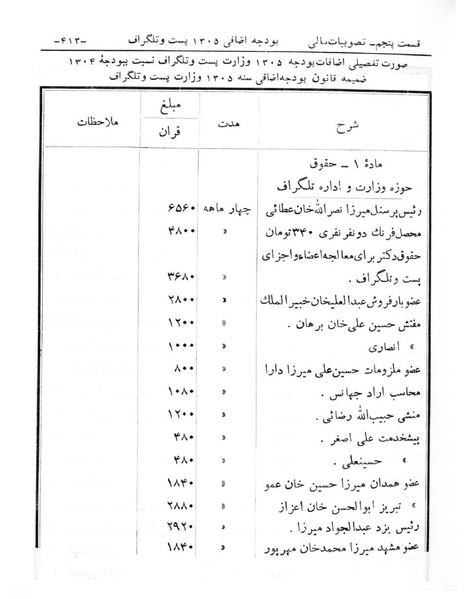 قسمت پنجم ـ تصویبات مالی    بودجه اضافی ۱۳۰۵ پست و تلگراف    ـ۴۱۳ـ
صورت تفصیلی اضافات بودجه ۱۳۰۵ وزارت پست و تلگراف نسبت ببودجهٔ ۱۳۰۴
ضمیمه قانون بودجه اضافی سنه ۱۳۰۵ وزارت پست و تلگراف
شرح    مدت    مبلغ قران    ملاحظات
مادهٔ ۱ ـ حقوق
حوزه وزارت و اداره تلگراف
رئیس پرسنل میرزا نصرالله خان عطائی    چهار ماهه    ۶۵۶۰
محصل فرنگ دو نفر نفری ۳۴۰ تومان    »    ۴۸۰۰
حقوق دکتر برای معالجه اعضاء و اجزای
پست و تلگراف .    »    ۳۶۸۰
عضو بار فروش عبدالعلیخان خبیر الملک    »    ۲۸۰۰
مفتش حسین علی خان برهان .    »    ۱۲۰۰
» انصاری    »    ۱۰۰۰
عضو ملزومات حسین علی میرزا دارا    »    ۸۰۰
محاسب اراد جهانس .    »    ۱۰۸۰
منشی حبیب الله رضائی .    »    ۱۲۰۰
پیشخدمت علی اصغر .    »    ۴۸۰
» حسینعلی .    »    ۴۸۰
عضو همدان میرزا حسین خان عمو    »    ۱۸۴۰
» تبریز ابوالحسن خان اعزاز    »    ۲۸۸۰
رئیس یزد عبدالجواد میرزا .    »    ۲۹۲۰
عضو مشهد میرزا محمد خان مهرپور    »    ۱۸۴۰